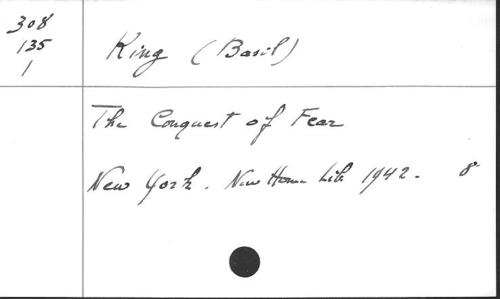 308
135
1
King (Basil)
The Conquest of Fear
New York. New Home Lib 1942. 8